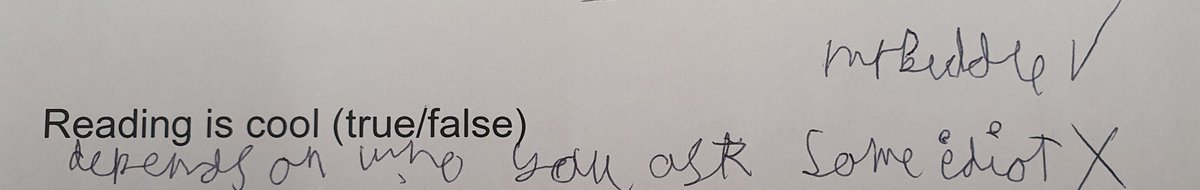 mr Beddle ✓
Reading is cool (true/false)
depends on who you ask some idiot X